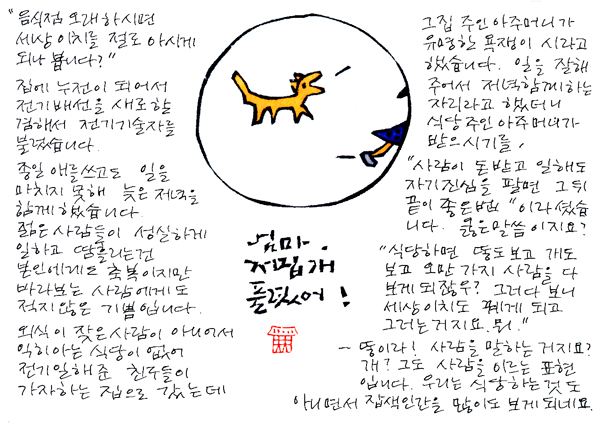 "음식점 오래 하시면
세상 이치를 절로 아시게
되나 봅니다?"
집에 누전이 되어서
전기배선을 새로 할
겸해서 전기기술자를
불렀습니다.
종일 애를 쓰고도 일을
마치지 못해 늦은 저녁을
함께 했습니다.
젊은 사람들이 성실하게
일하고 땀흘리는건
본인에게도 축복이지만
바라보는 사람에게도
적지 않은 기쁨입니다.
외식이 잦은 사람이 아니어서
익히 아는 식당이 없어
전기일 해 준 친구들이
가자하는 집으로 갔는데
엄마,
저집개
풀렸어!
그집 주인 아주머니가
유명한 욕쟁이시라고
했습니다. 일을 잘해
주어서 저녁 함께하는
자리라고 했더니
식당 주인 아주머니가
받으시기를,
"사람이 돈 받고 일해도
자기 진심을 팔면 그 뒤
끝이 좋은 법"이라셨습
니다. 옳은 말씀이지요?
"식당하면 똥도 보고 개도
보고 오만 가지 사람을 다
보게 되잖우? 그러다 보니
세상 이치도 꿰게 되고
그러는거지요. 뭐."
— 똥이라! 사람을 말하는 거지요?
개? 그도 사람을 이르는 표현
입니다. 우리는 식당하는 것도
아니면서 잡색인간을 많이도 보게 되네요.